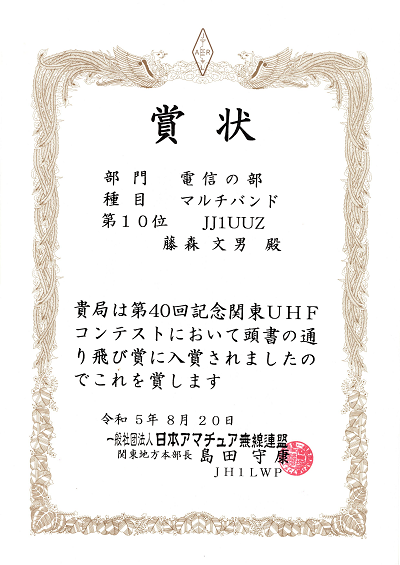 賞状
部門 電信の部
種目 マルチバンド
第１０位 JJ1UUZ
藤森文男 殿
貴局は第40回記念関東ＵＨＦ
コンテストにおいて頭書の通
り飛び賞に入賞されましたの
でこれを賞します
令和 5年 8月 20日
一般社団法人 日本アマチュア無線連盟
関東地方本部長 島田守康
JH1LWP